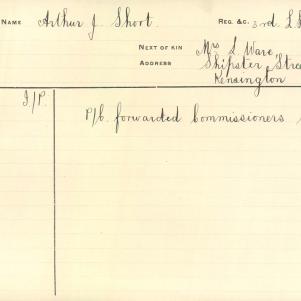 NAME Arthur J. Short. REG. &C. 3rd L.
NEXT OF KIN Mrs L. Ware,
ADDRESS Shipster Stree
Kensington
I/P. P/C. forwarded Commissioners